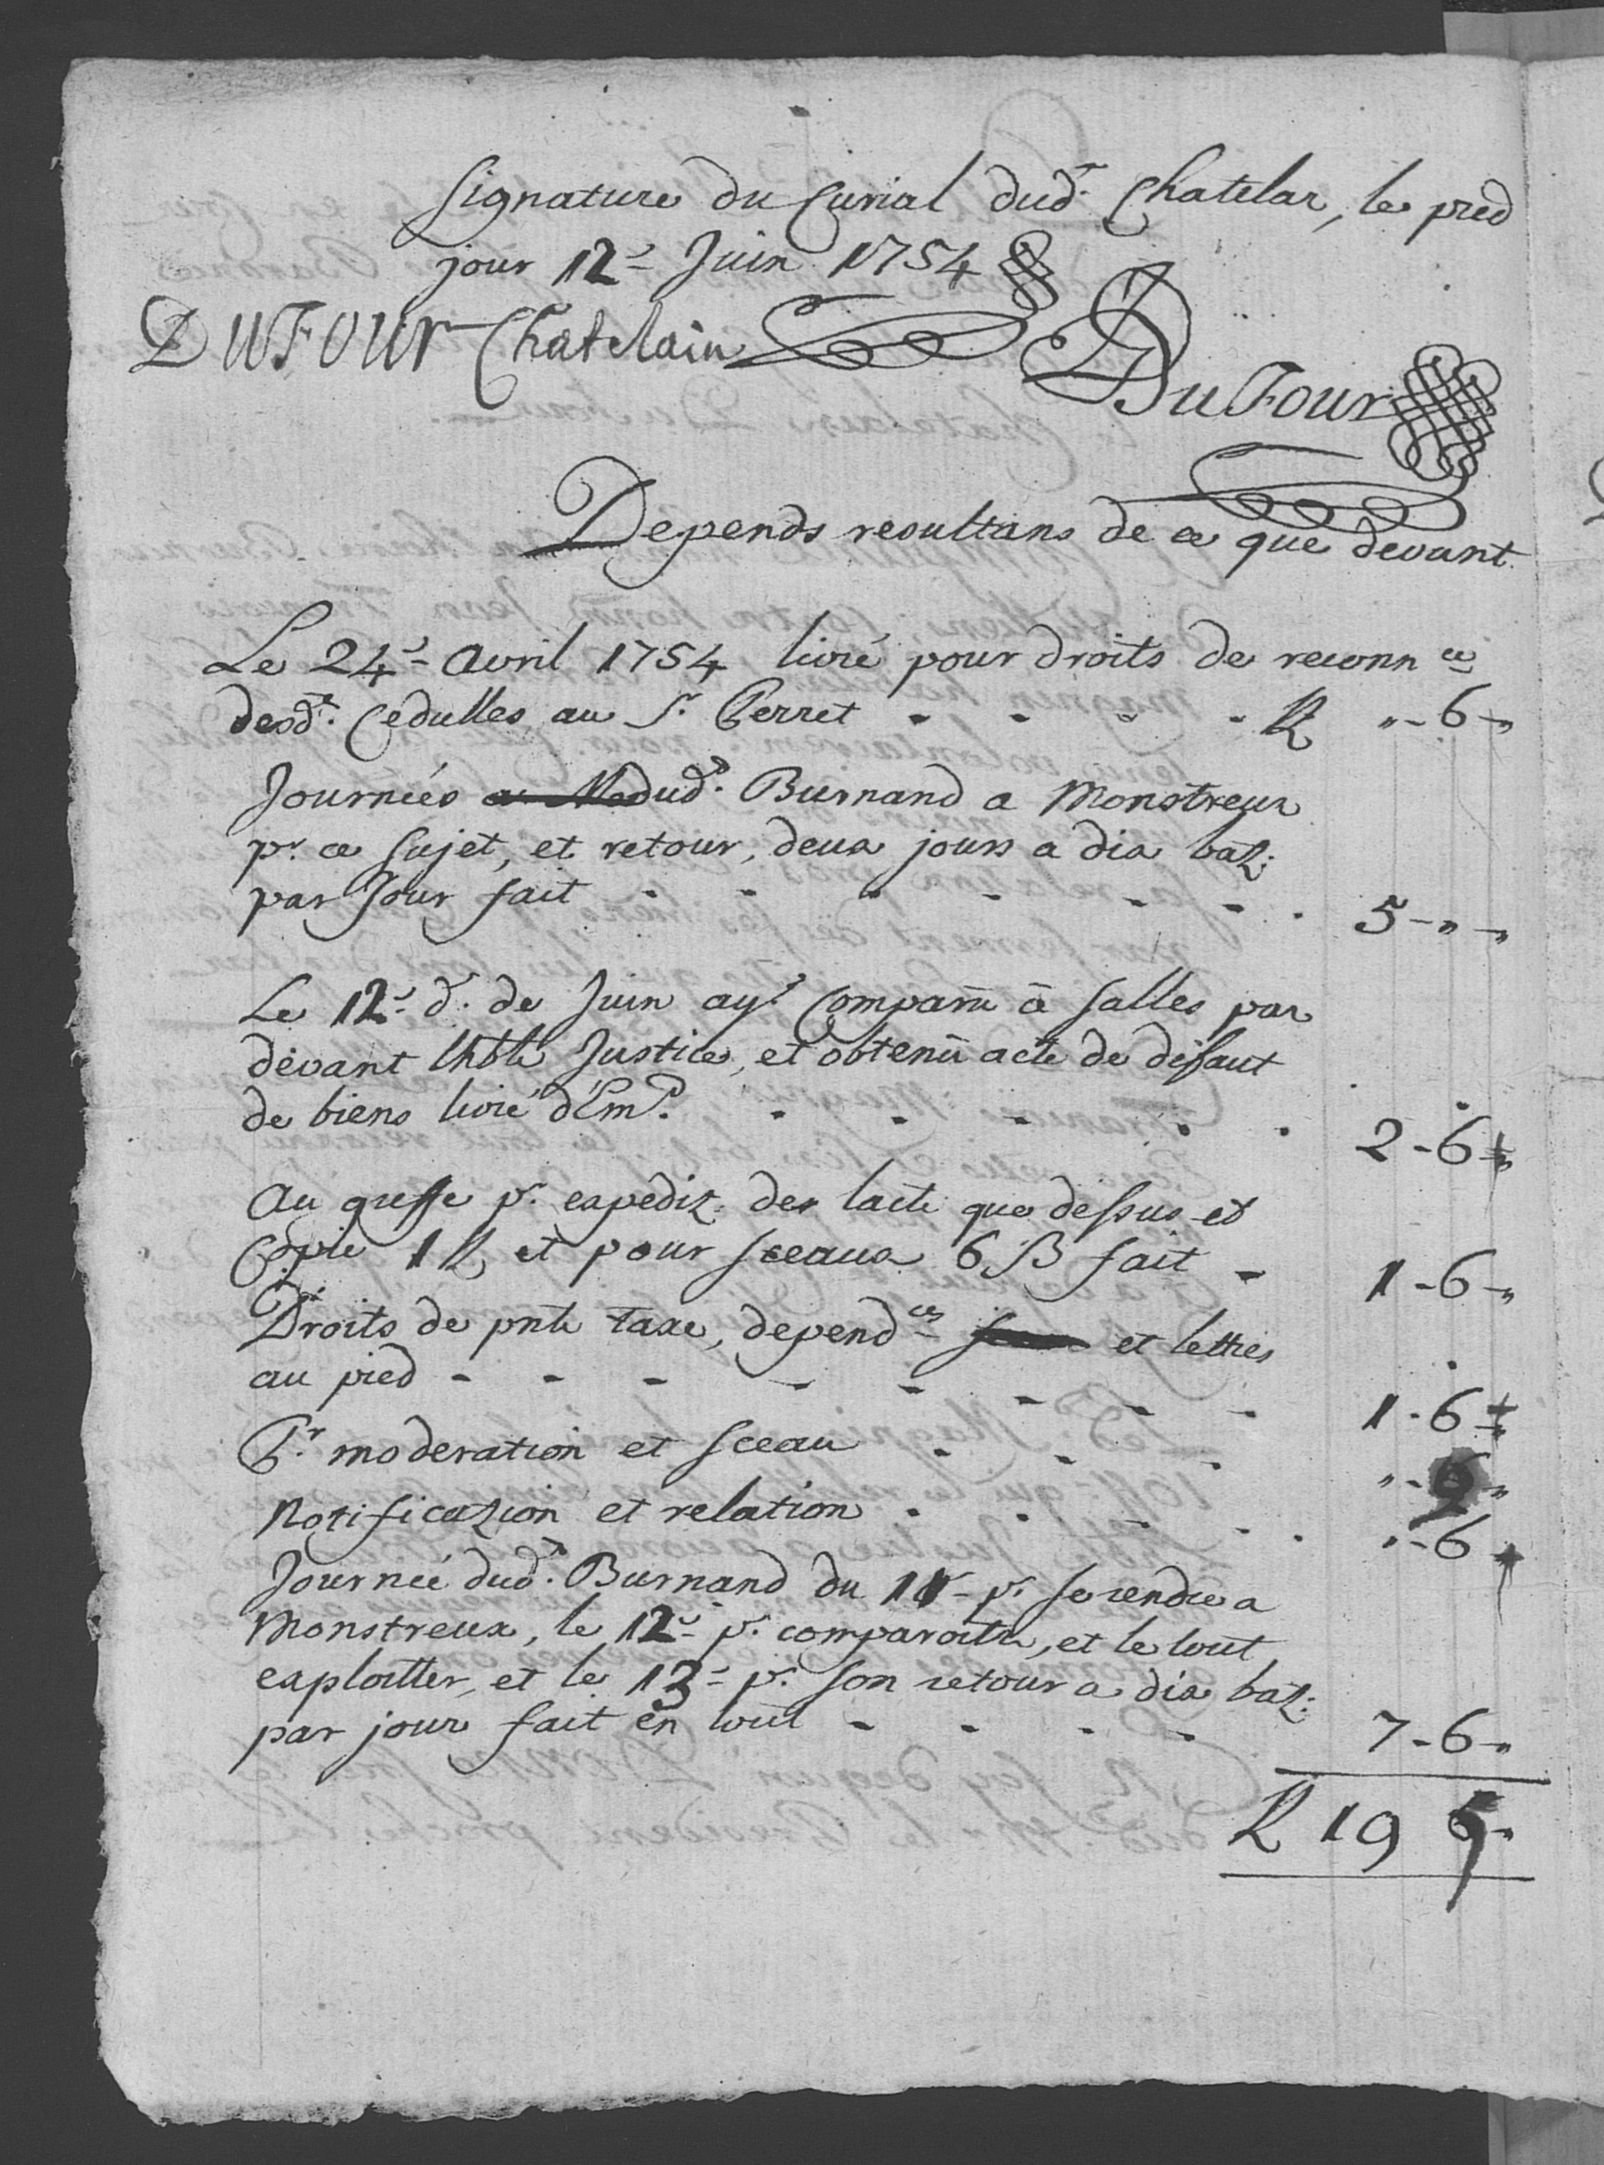 Signature du Curial dud.t Chatelar, le pred
jour 12.e Juin 1754
DuFour Chatelain
DuFour
Depends resultans de ce que devant
Le 24.e Avril 1754 livré pour droits de reconn.ce
desd.t Cedulles au S.r Perret - - - - R " - 6 - "
Journées dud.t Burnand a Monstreux
p.r ce sujet, et retour, deux jours a dix batz:
par Jour fait - - - - - - - 5 - " - "
Le 12.e d.t de Juin ay.t Comparu à Salles par
devant lhble Justice, et obtenû acte de défaut
de biens livré d'Em.t - - - - - 2 - 6 - "
Au greffe p.r expedit: der lacte que dessus et
Copie 1 R, et pour sceaux 6 ß fait - 1 - 6 - "
Droits de pnte taxe, depend.ces et lettres
au pied - - - - - - - - 1 - 6 - "
P.r moderation et sceau - - - " - 9 - "
Notification et relation - - - - - " - 6 - "
Journée dud.t Burnand du 11.e p.r se rendre a
Monstreux, le 12.e p.r comparoitre, et le tout
exploitter, et le 13.e p.r son retour a dix batz:
par jour fait en tout - - - - 7 - 6 - "
R 19 5 - "